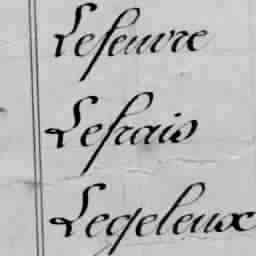 Lefeuvre
Lefrais
Legeleux